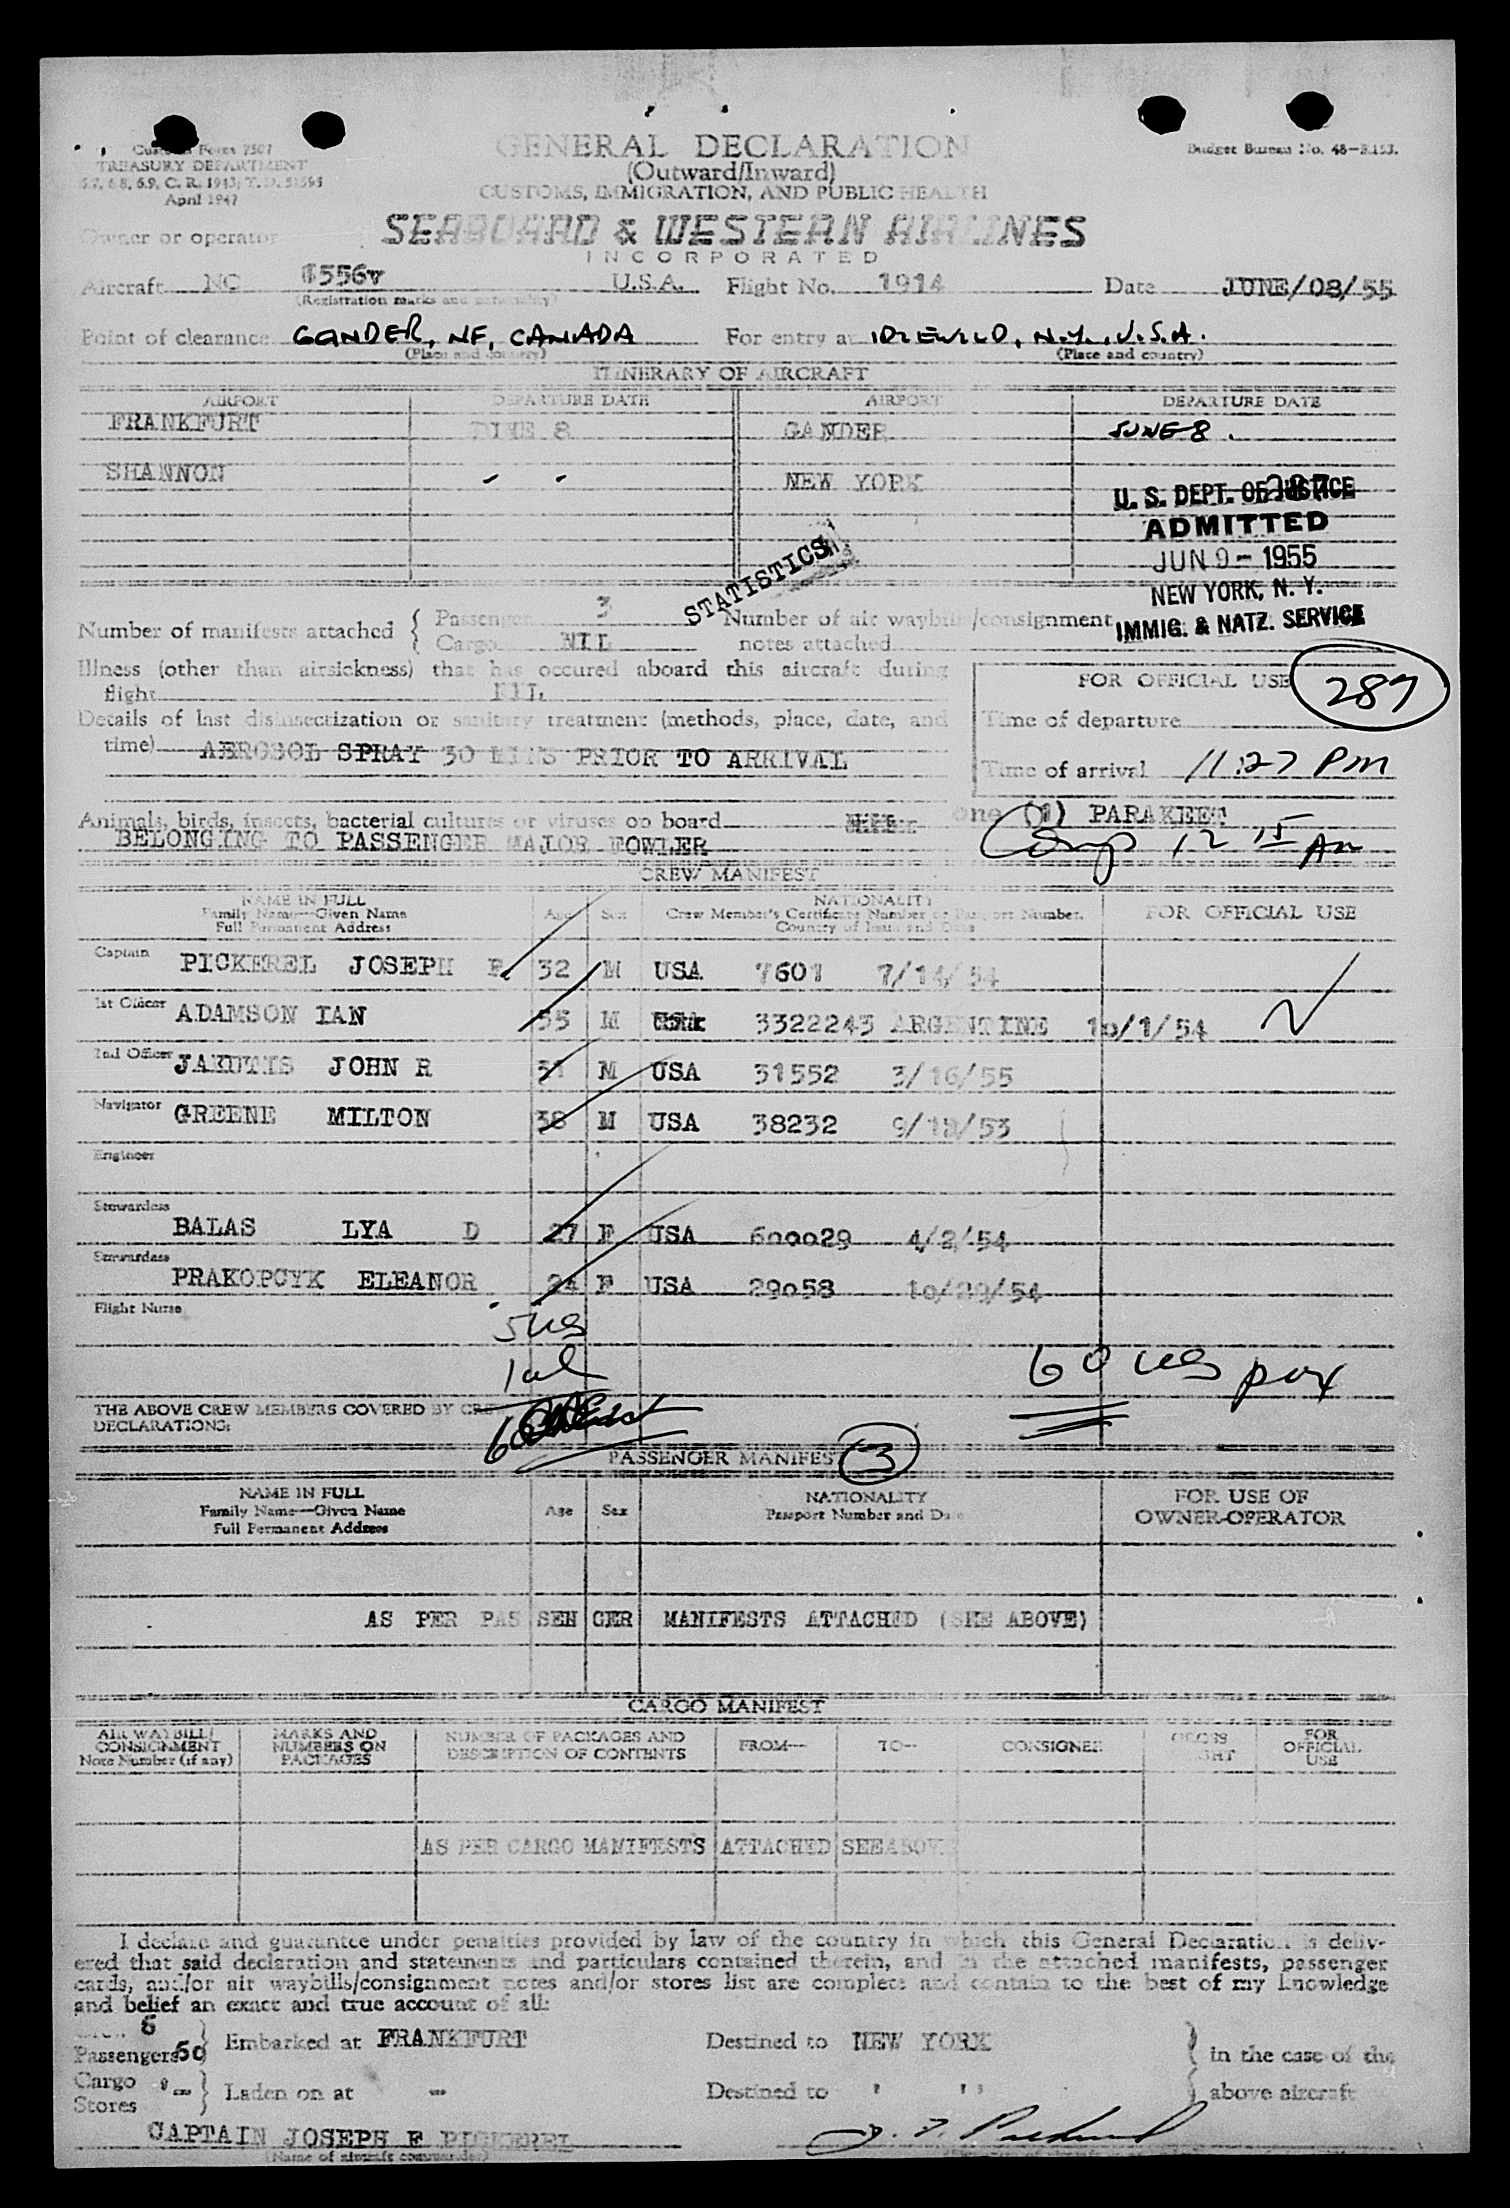 Customs Form 7507
TREASURY DEPARTMENT
April 1947
GENERAL DECLARATION
(Outward/Inward)
CUSTOMS, IMMIGRATION, AND PUBLIC HEALTH
Budget Bureau No. 48-R153.
Owner or operator
SEABOARD & WESTERN AIRLINES
INCORPORATED
Aircraft NC 1556V U.S.A. Flight No. 1914 Date JUNE/08/55
(Registration marks and nationality)
Point of clearance GANDER, NF, CANADA For entry at IDLEWILD, N.Y., U.S.A.
(Place and country) (Place and country)
ITINERARY OF AIRCRAFT
AIRPORT DEPARTURE DATE AIRPORT DEPARTURE DATE
FRANKFURT JUNE 8 GANDER JUNE 8.
SHANNON " " NEW YORK
287
U. S. DEPT. OF JUSTICE
ADMITTED
JUN 9 - 1955
NEW YORK, N. Y.
IMMIG. & NATZ. SERVICE
STATISTICS
Number of manifests attached { Passenger 3 Number of air waybills/consignment
Cargo NIL notes attached
Illness (other than airsickness) that has occured aboard this aircraft during
flight NIL
FOR OFFICIAL USE 287
Details of last disinsectization or sanitary treatment (methods, place, date, and
time) AEROSOL SPRAY 30 MINS PRIOR TO ARRIVAL
Time of departure
Time of arrival 11:27 PM
Animals, birds, insects, bacterial cultures or viruses on board one (1) PARAKEET
BELONGING TO PASSENGER MAJOR FOWLER
Comp 12 15 Am
CREW MANIFEST
NAME IN FULL
Family Name—Given Name
Full Permanent Address
Age Sex
NATIONALITY
Crew Member's Certificate Number or Passport Number.
Country of Issue and Date
FOR OFFICIAL USE
Captain PICKEREL JOSEPH F 32 M USA 7601 7/14/54
1st Officer ADAMSON IAN 35 M 3322243 ARGENTINE 10/1/54
2nd Officer JAKUTIS JOHN R 31 M USA 31552 3/16/55
Navigator GREENE MILTON 38 M USA 38232 9/18/53
Engineer
Stewardess BALAS LYA D 27 F USA 600029 4/2/54
Stewardess PRAKOPCYK ELEANOR 24 F USA 29058 10/29/54
Flight Nurse
5 us
1 al
60 us pax
THE ABOVE CREW MEMBERS COVERED BY CREW
DECLARATIONS:
6
PASSENGER MANIFEST 3
NAME IN FULL
Family Name—Given Name
Full Permanent Address
Age Sex
NATIONALITY
Passport Number and Date
FOR USE OF
OWNER-OPERATOR
AS PER PASSENGER MANIFESTS ATTACHED (SEE ABOVE)
CARGO MANIFEST
AIR WAYBILL/
CONSIGNMENT
Note Number (if any)
MARKS AND
NUMBERS ON
PACKAGES
NUMBER OF PACKAGES AND
DESCRIPTION OF CONTENTS
FROM— TO— CONSIGNEE
GROSS
WEIGHT
FOR
OFFICIAL
USE
AS PER CARGO MANIFESTS ATTACHED SEE ABOVE
I declare and guarantee under penalties provided by law of the country in which this General Declaration is deliv-
ered that said declaration and statements and particulars contained therein, and in the attached manifests, passenger
cards, and/or air waybills/consignment notes and/or stores list are complete and contain to the best of my knowledge
and belief an exact and true account of all:
Crew 6
Passengers 60 } Embarked at FRANKFURT Destined to NEW YORK } in the case of the
Cargo
Stores } Laden on at - Destined to " " } above aircraft
CAPTAIN JOSEPH F PICKEREL
(Name of aircraft commander)